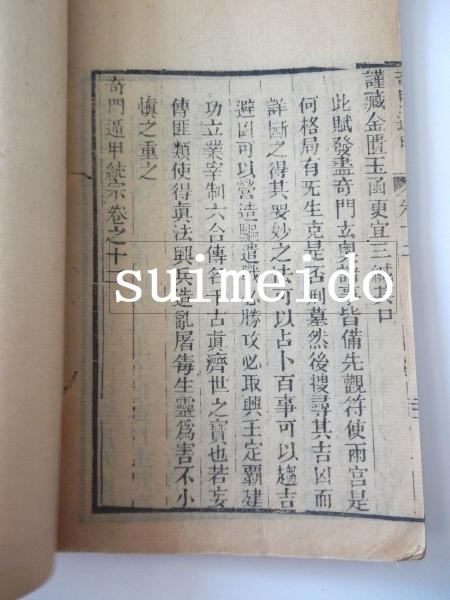 謹藏金匱玉函更宜三緘其口
此賦發盡奇門玄奧諸事皆備先觀符使兩宮是
何格局有旡生克是否刑墓然後搜尋其吉凶而
詳斷之得其要妙之法可以占卜百事可以趨吉
避凶可以營造驅遣戰必勝攻必取興王定霸建
功立業宰制六合傳名千古眞濟世之寳也若妄
傳匪類使得眞法興兵造亂屠毒生靈爲害不小
慎之重之
奇門遁甲統宗卷之十二
suimeido